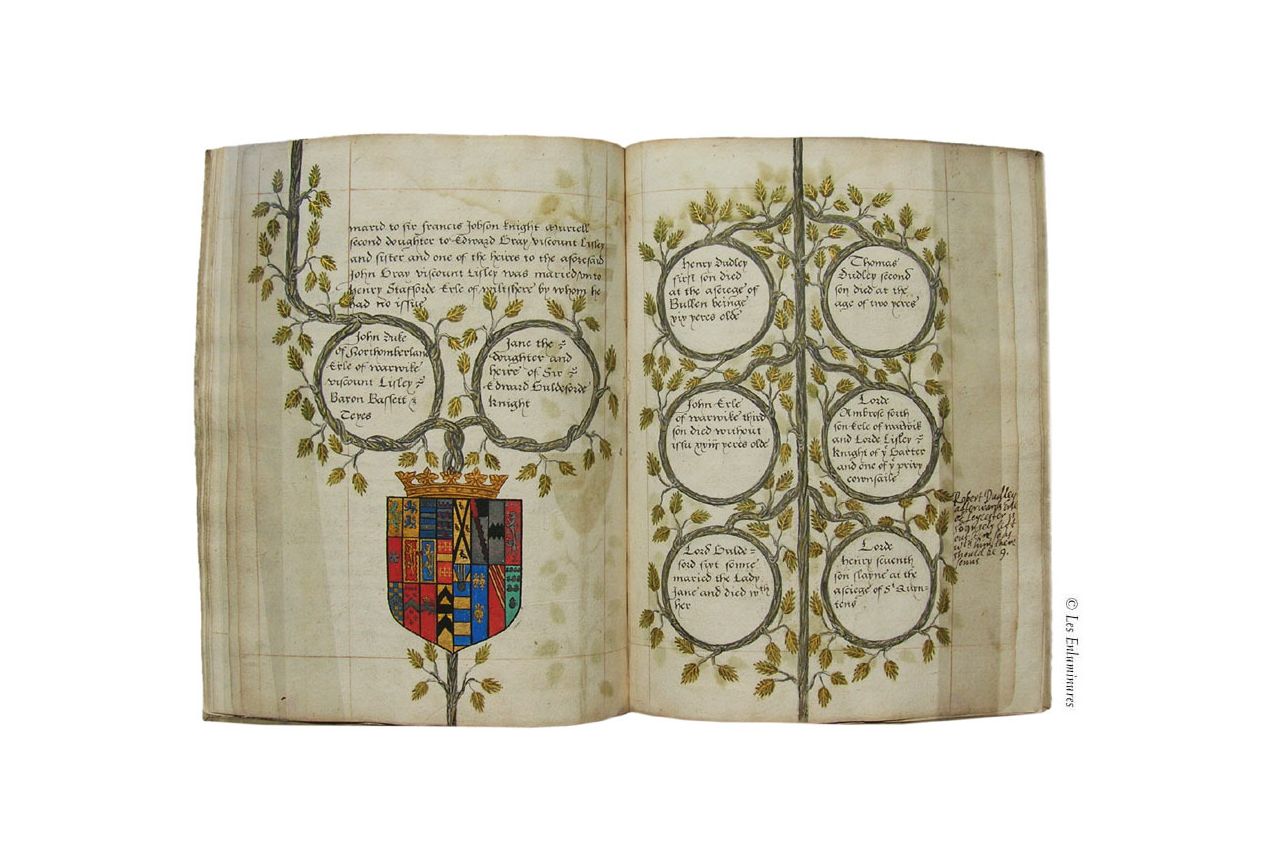 marid to sir francis Jobson knight Muriell
second doughter to Edward Gray viscount Lisley
and sister and one of the heires to the aforesaid
John Gray viscount Lisley was maried unto
henry Stafforde Erle of wiltshere by whom he
had no issue
John Duke
of Northomberland
Erle of warwike
viscount Lisley &
Baron Bassett &
Teyes
Jane the
doughter and
heire of Sir
Edward Guldeforde
knight
Henry Dudley
first son died
at the asciege of
Bullen beinge
xix yeres olde
Thomas
Dudley second
son died at the
age of two yeres
John Erle
of warwike third
son died without
issu xxiiij yeres olde
Lorde
Ambrose forth
son Erle of warwik
and Lorde Lisley &
knight of ye Garter
and one of ye privy
cownsaile
Lord Gulde=
ford sixt sonne
maried the Lady
Jane and died wth
her
Lorde
henry seuenth
son slayne at the
asciege of St Quyn-
tens
Robert Dudley
afterwards Erle
of Leycester is
left
out
wth him there
should be 9.
sonns
© Les Enluminures